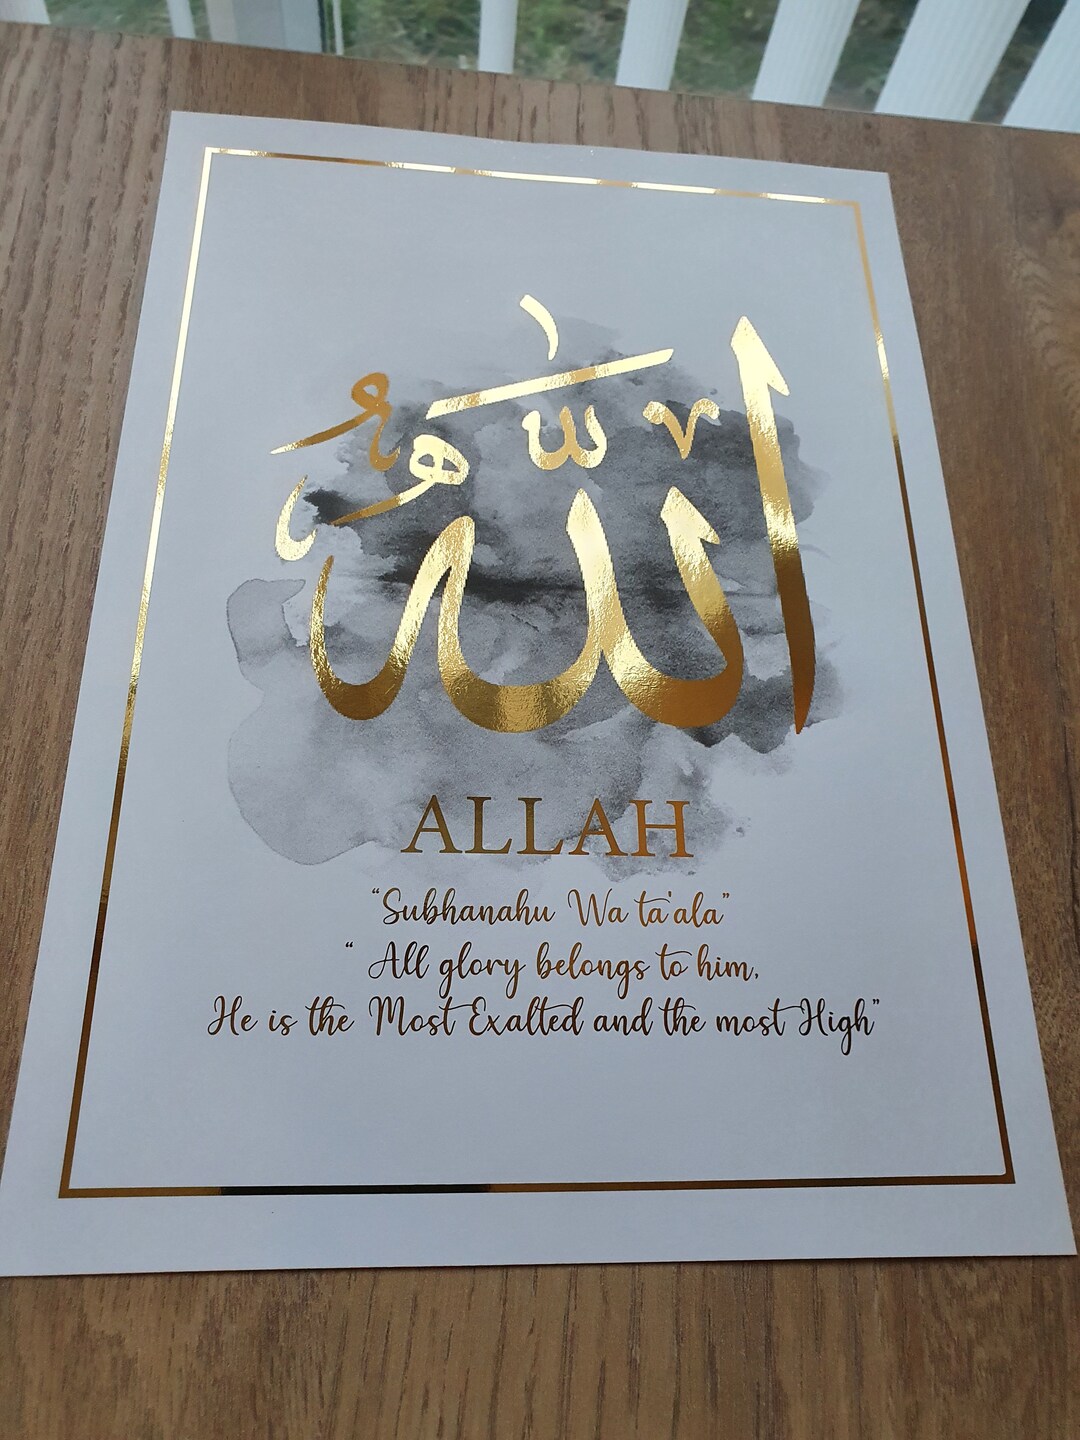 الله
ALLAH
"Subhanahu Wa ta'ala"
" All glory belongs to him,
He is the Most Exalted and the most High"